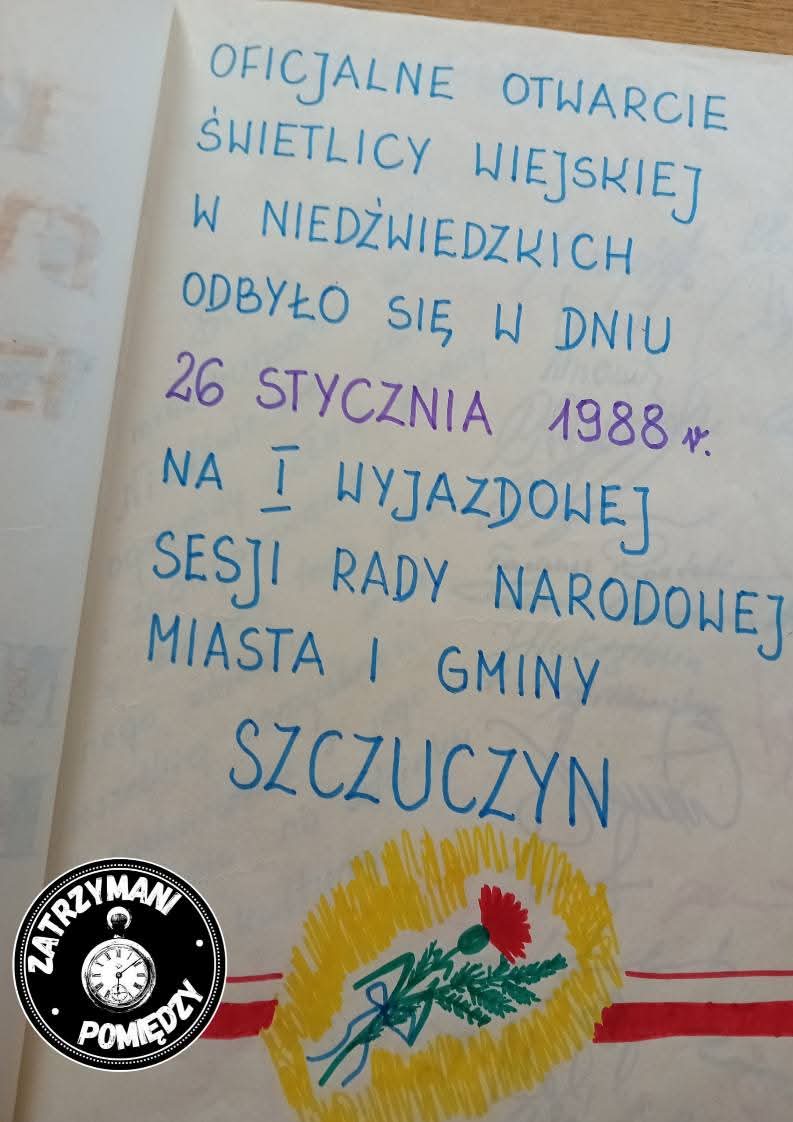 OFICJALNE OTWARCIE
ŚWIETLICY WIEJSKIEJ
W NIEDŹWIEDZKICH
ODBYŁO SIĘ W DNIU
26 STYCZNIA 1988 r.
NA I WYJAZDOWEJ
SESJI RADY NARODOWEJ
MIASTA I GMINY
SZCZUCZYN
ZATRZYMANI
POMIĘDZY